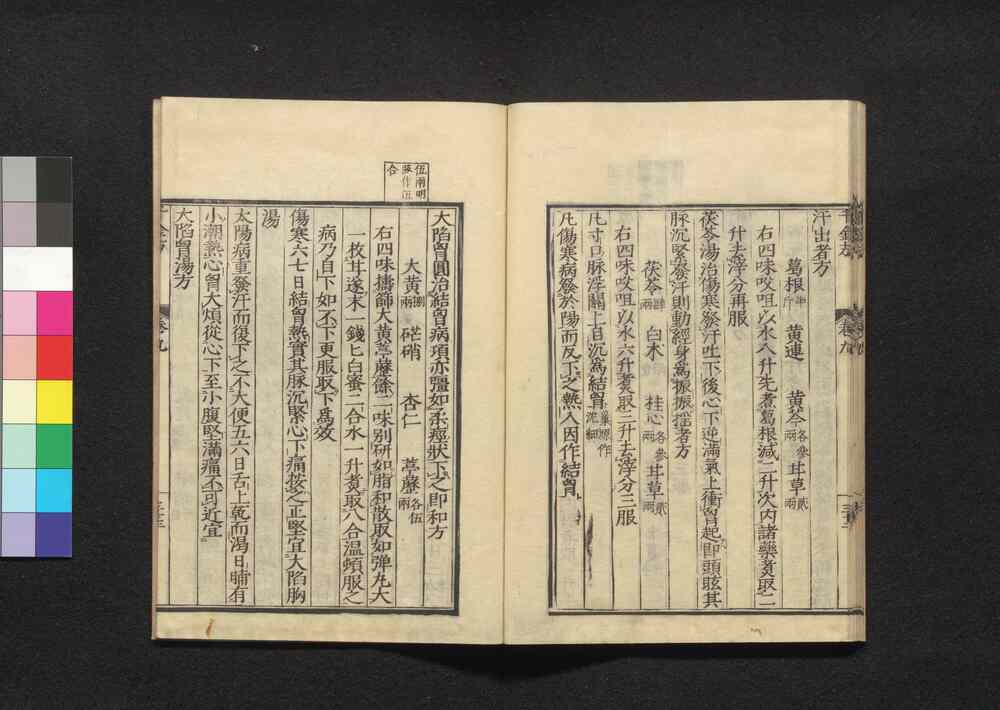 汗出者方
葛根半斤 黄連 黄芩各參兩 甘草貳兩
右四味㕮咀以水八升先煮葛根減二升次内諸藥煮取二
升去滓分再服
茯苓湯治傷寒發汗吐下後心下逆滿氣上衝胷起即頭眩其
脉沉緊發汗則動經身爲振振揺者方
茯苓肆兩 白木 桂心各參兩 甘草貳兩
右四味㕮咀以水六升煮取三升去滓分三服
凡寸口脉浮關上自沉爲結胷巢源作沉細
凡傷寒病發於陽而反下之熱入因作結胷
伍兩明
藤作伍
合
大陷胷圓治結胷病項亦彊如柔痓狀下之即和方
大黄捌兩 硭硝 杏仁 葶藶各伍兩
右四味擣篩大黄葶藶餘二味别研如脂和散取如弹丸大
一枚甘遂末一錢匕白蜜二合水一升煮取八合温頓服之
病乃自下如不下更服取下爲效
傷寒六七日結胷熱實其脉沉緊心下痛按之正堅宜大陷胸
湯
太陽病重發汗而復下之不大便五六日舌上乾而渇日晡有
小潮熱心胷大煩從心下至小腹堅滿痛不可近宜
大陷胷湯方